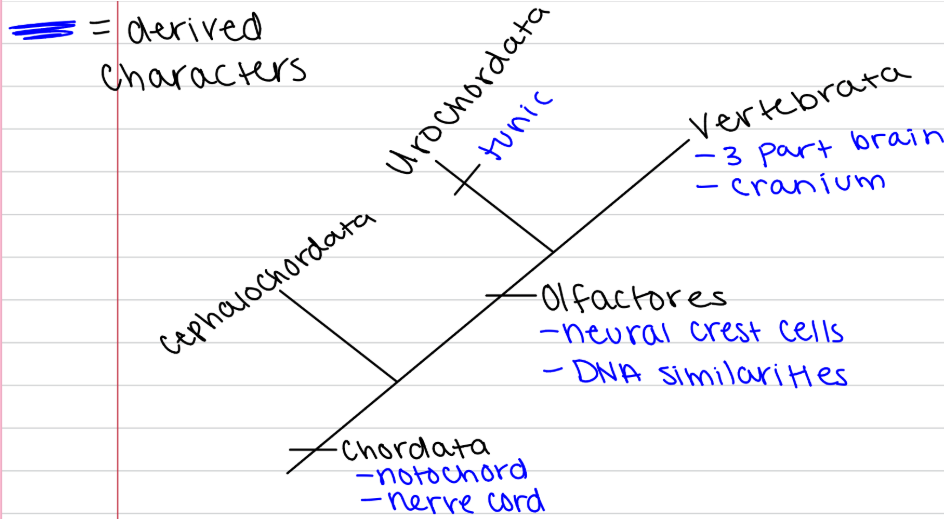 = derived
characters
Urochordata
tunic
Vertebrata
- 3 part brain
- cranium
Cephalochordata
Olfactores
- neural crest cells
- DNA similarities
Chordata
- notochord
- nerve cord